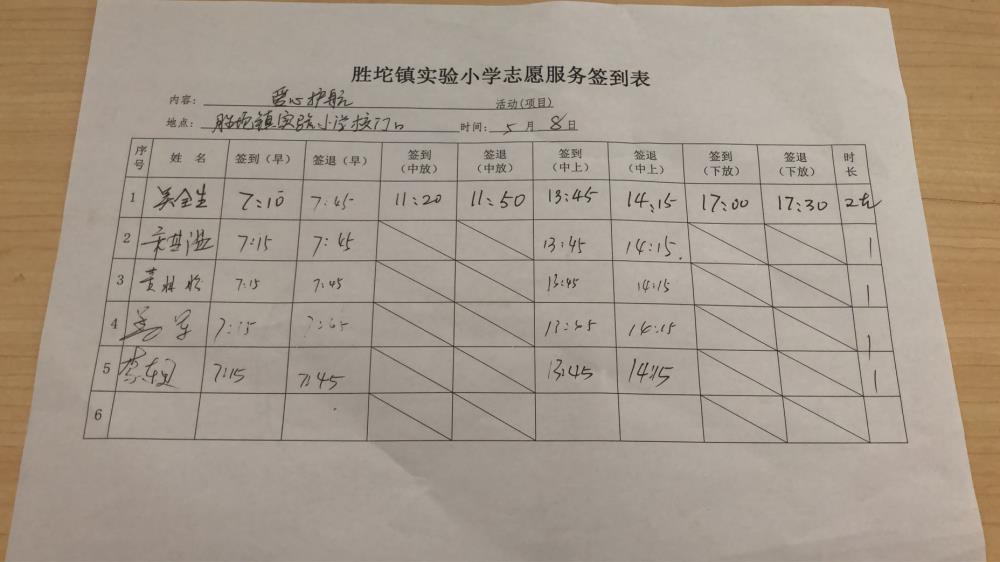 胜坨镇实验小学志愿服务签到表
内容: 爱心护航 活动(项目)
地点: 胜坨镇实验小学校门口 时间: 5 月 8 日
序号 姓名 签到（早） 签退（早） 签到（中放） 签退（中放） 签到（中上） 签退（中上） 签到（下放） 签退（下放） 时长
1 吴全生 7:10 7:45 11:20 11:50 13:45 14:15 17:00 17:30
2 7:15 7:45 13:45 14:15. 1
3 黄林松 7:15 7:45 13:45 14:15 1
4 7:15 7:45 13:45 14:15 1
5 7:15 7:45 13:45 14:15 1
6